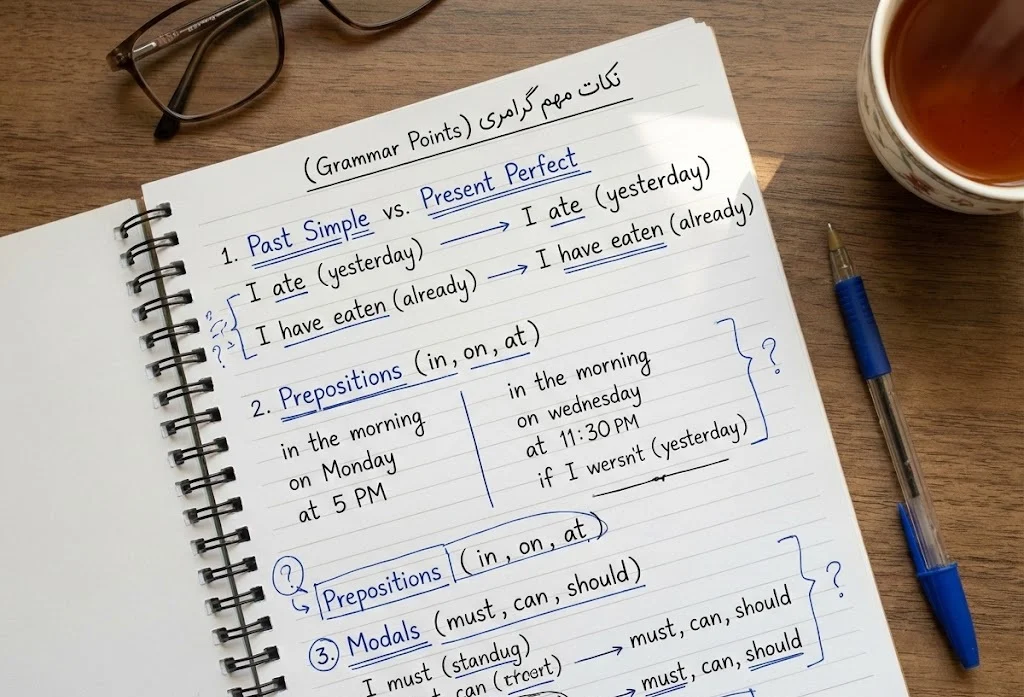 نکات مهم گرامری (Grammar Points)
1. Past Simple vs. Present Perfect
I ate (yesterday) → I ate (yesterday)
I have eaten (already) → I have eaten (already)
? ?
?
2. Prepositions (in, on, at)
in the morning
on Monday
at 5 PM
in the morning
on wednesday
at 11:30 PM
if I wersn't (yesterday)
?
?
Prepositions (in, on, at)
3. Modals (must, can, should)
I must (standug) → must, can, should
can → must, can, should
?